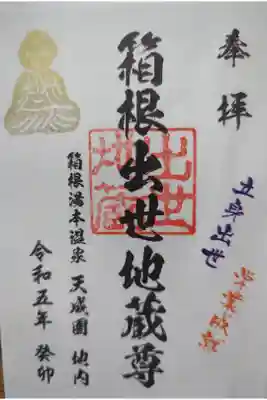 奉拝
立身出世
学業成就
箱根出世地蔵尊
出世
地蔵
箱根湯本温泉 天成園 地内
令和五年 癸卯